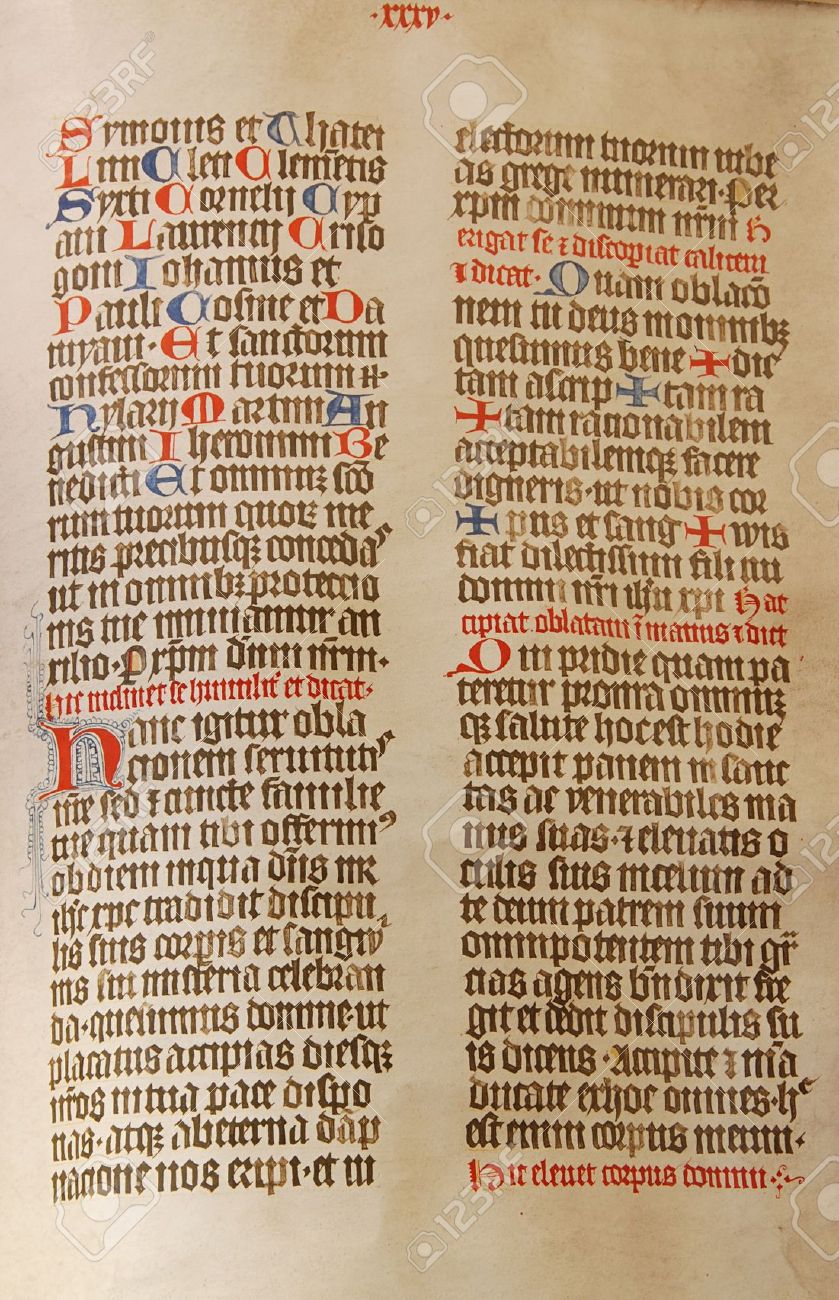 ·xxxv·
Symonis et Thatei
Lini Cleti Clemētis
Syxti Cornelij Cyp
ani Laurencij Criso
goni Iohannis et
Pauli Cosme et Da
myani· Et sanctorum
confessorum tuorum
hylarij Martini Au
gustini Iheronimi Be
nedicti Et omniuz scō
rum tuorum quoꝝ me
ritis precibusqꝫ conceda
ut in omnibꝫ proteccio
nis tue muniamur au
xilio· P xp̄m dn̄m nr̄m·
hic inclinet se humilit̄ et dicat·
Hanc igitur obla
cionem seruituti
nr̄e sed ⁊ cuncte familie
tue quam tibi offerim⁹
ob diem in qua dn̄s nr̄
ih̄c xp̄c tradidit discipu
lis suis corporis et sangwi
nis sui misteria celebran
da·quesumus domine·ut
placatus accipias diesqꝫ
nr̄os in tua pace dispo
nas·atqꝫ ab eterna dāp
nacione nos eripi·et in
electorum tuorum iube
as grege numerari·Per
xp̄m dominum nr̄m H
erigat se ⁊ discopiat calicem
⁊ dicat· Quam oblacō
nem tu deus in omnibꝫ
quesumus bene ✠ dic
tam ascrip ✠ tam ra
✠ tam racionabilem
acceptabilemqꝫ facere
digneris·ut nobis cor
✠ pus et sang ✠ wis
fiat dilectissimi filii tui
domini nr̄i ih̄u xp̄i Hac
cipiat oblatam ī manus ⁊ dict
Qui pridie quam pa
teretur pro nr̄a omniuz
qꝫ salute hoc est hodie
accepit panem in sanc
tas ac venerabiles ma
nus suas·⁊ eleuatis o
culis suis in celum ad
te deum patrem suum
omnipotentem tibi gr̄
cias agens bn̄dixit fre
git et dedit discipulis su
is dicens· Accipite ⁊ mā
ducate ex hoc omnes·hͨ
est enim corpus meum·
Hic eleuet corpus domini
123RF